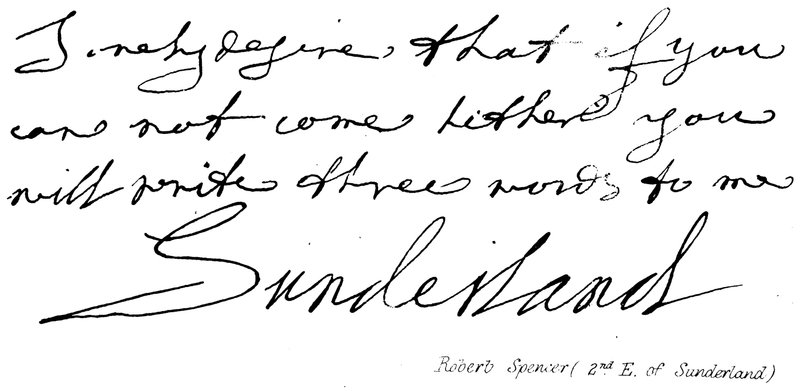 I . nely desire that if you
can not come hither you
will write three words to me
Sunderland
Robert Spencer ( 2nd E. of Sunderland)